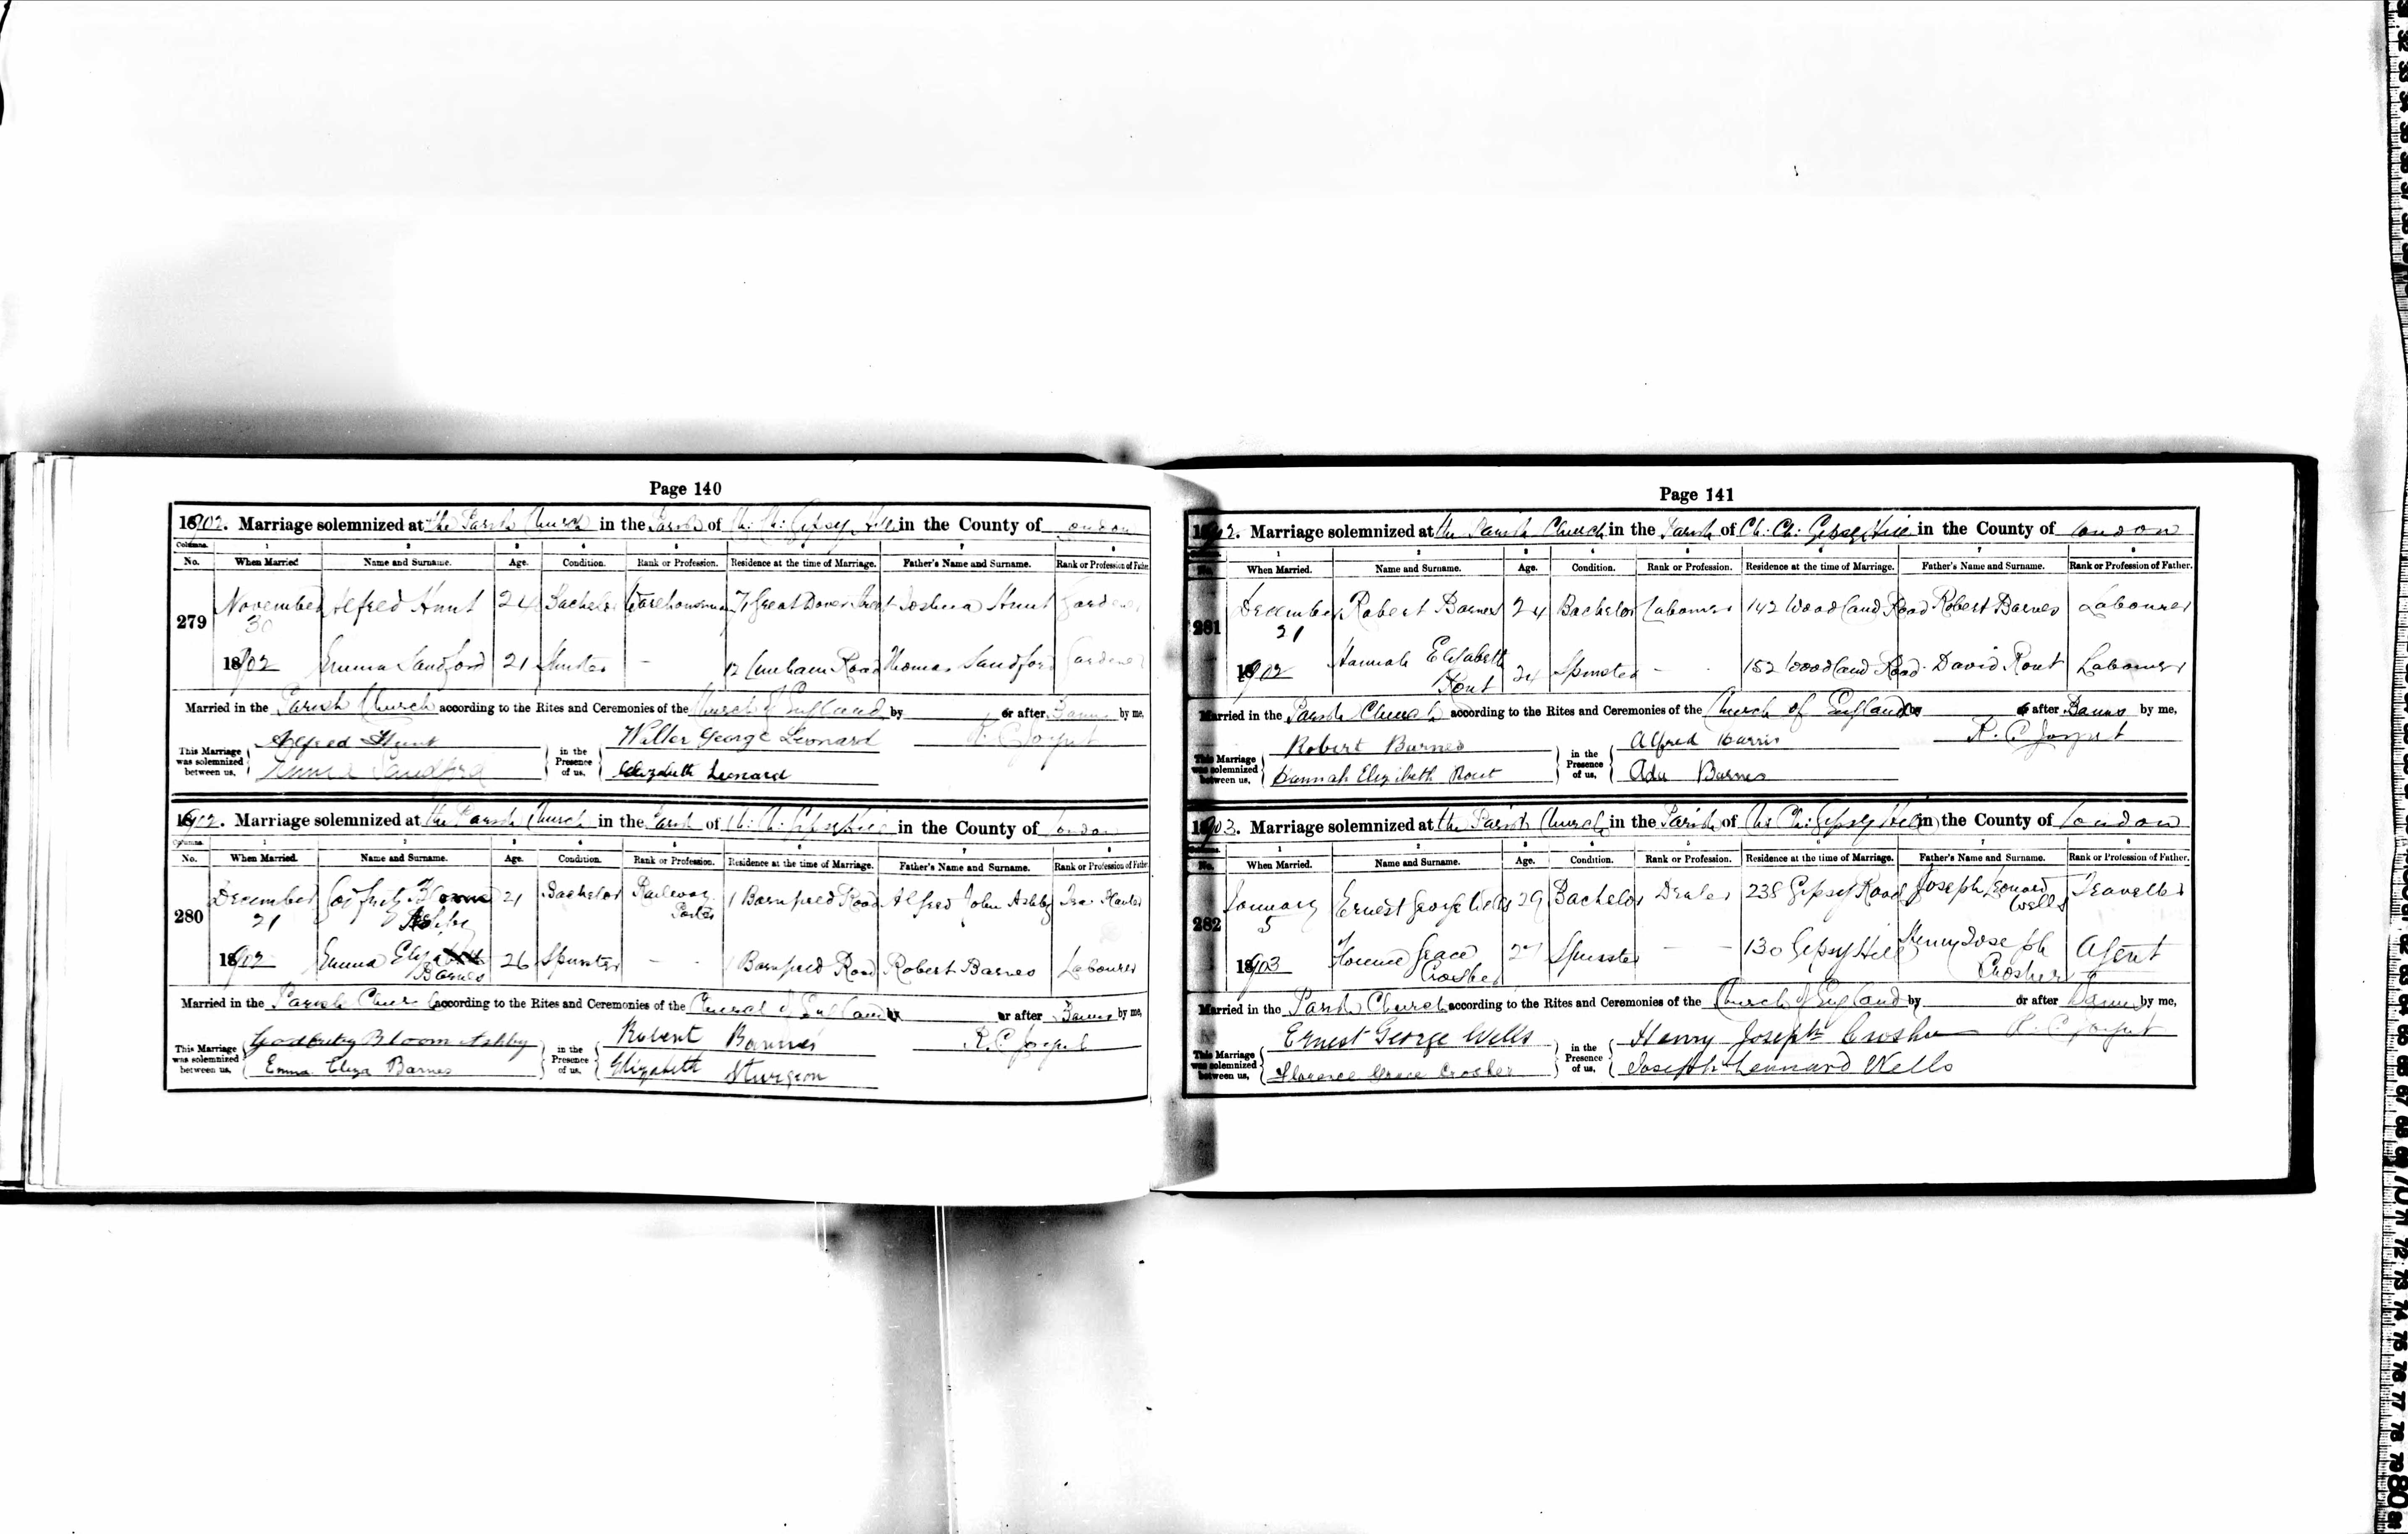 Page 140
1902. Marriage solemnized at the Parish Church in the Parish of Ch. Ch. Gipsy Hill in the County of London
Columns. 1 2 3 4 5 6 7 8
No. When Married Name and Surname. Age. Condition. Rank or Profession. Residence at the time of Marriage. Father's Name and Surname. Rank or Profession of Father
279 November 30 1902 Alfred Hunt 24 Bachelor Warehouseman 71 Great Dover Street Joshua Hunt Gardener
Emma Sandford 21 Spinster - 12 Road Thomas Sandford Gardener
Married in the Parish Church according to the Rites and Ceremonies of the Church of England by or after Banns by me,
This Marriage was solemnized between us, Alfred Hunt in the Presence of us, Walter George Leonard R. C.
Emma Sandford Elizabeth Leonard
1902. Marriage solemnized at the Parish Church in the Parish of Ch. Ch. Gipsy Hill in the County of London
Columns. 1 2 3 4 5 6 7 8
No. When Married. Name and Surname. Age. Condition. Rank or Profession. Residence at the time of Marriage. Father's Name and Surname. Rank or Profession of Father
280 December 21 1902 Ashby 21 Bachelor Railway Porter 1 Barnfield Road Alfred John Ashby
Emma Eliza Barnes 26 Spinster - - 1 Barnfield Road Robert Barnes Labourer
Married in the Parish Church according to the Rites and Ceremonies of the Church of England by or after Banns by me,
This Marriage was solemnized between us, Bloom Ashby in the Presence of us, Robert Barnes R. C.
Emma Eliza Barnes Elizabeth Sturgeon
Page 141
1902. Marriage solemnized at the Parish Church in the Parish of Ch. Ch. Gipsy Hill in the County of London
Columns. 1 2 3 4 5 6 7 8
No. When Married. Name and Surname. Age. Condition. Rank or Profession. Residence at the time of Marriage. Father's Name and Surname. Rank or Profession of Father.
281 December 21 1902 Robert Barnes 24 Bachelor Labourer 142 Woodland Road Robert Barnes Labourer
Hannah Elizabeth Rout 24 Spinster - - 152 Woodland Road David Rout Labourer
Married in the Parish Church according to the Rites and Ceremonies of the Church of England by or after Banns by me,
This Marriage was solemnized between us, Robert Barnes in the Presence of us, Alfred Harris R. C.
Hannah Elizabeth Rout Ada Barnes
1903. Marriage solemnized at the Parish Church in the Parish of Ch. Ch. Gipsy Hill in the County of London
Columns. 1 2 3 4 5 6 7 8
No. When Married. Name and Surname. Age. Condition. Rank or Profession. Residence at the time of Marriage. Father's Name and Surname. Rank or Profession of Father.
282 January 5 1903 Ernest George Wells 29 Bachelor Dealer 238 Gipsy Road Joseph Leonard Wells Traveller
Florence Grace Crosher 27 Spinster - - 130 Gipsy Hill Henry Joseph Crosher Agent
Married in the Parish Church according to the Rites and Ceremonies of the Church of England by or after Banns by me,
This Marriage was solemnized between us, Ernest George Wells in the Presence of us, Henry Joseph Crosher R. C.
Florence Grace Crosher Joseph Lennard Wells